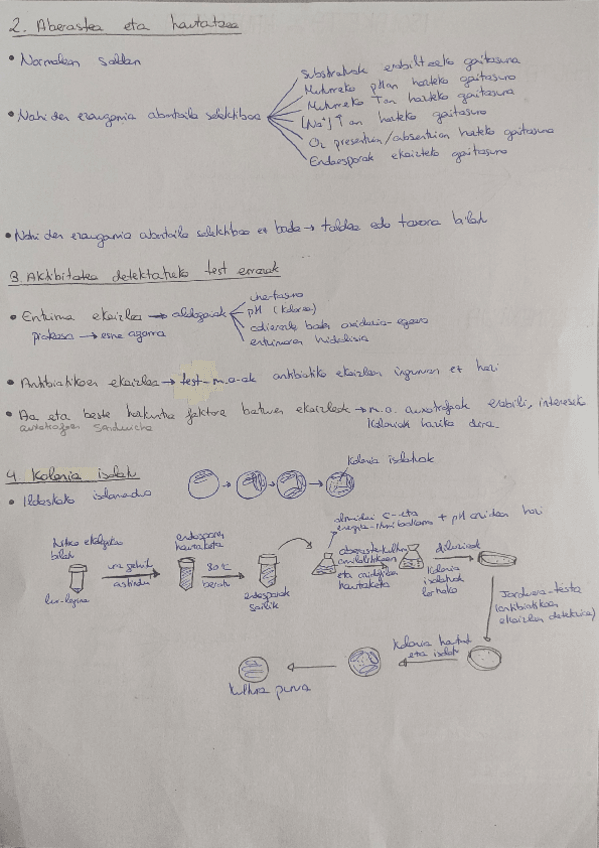 2. Aberastea eta hautatzea
• Normalean saldan
• Nahi den ezaugarria abantaila selektiboa
Substratuak erabiltzeko gaitasuna
Muturreko pHan hazteko gaitasuna
Muturreko Tan hazteko gaitasuna
[Na+]↑an hazteko gaitasuna
O2 presentzian/absentzian hazteko gaitasuna
Endosporak ekoizteko gaitasuna
• Nahi den ezaugarria abantaila selektiboa ez bada → taldea edo taxona bilatu
3. Aktibitatea detektatzeko test errazak
• Entzima ekoizlea → aldagaiak
pH (kolorea)
adierazle baten oxidazio-egoera
entzimaren hidrolisia
proteasa → esne agarra
• Antibiotikoen ekoizlea → test-m.o.-ak antibiotiko ekoizleen inguruan ez hazi
• Aa eta beste hazkuntza faktore batzuen ekoizleak → m.o. auxotrofoak erabili, interesik
auxotrofoen sandwicha
koloniak hazika dira.
4. Kolonia isolatu
• Ildaskako isolamendua
Kolonia isolatuak
almidoi C-eta
energia-iturri bakarra + pH azidoan hazi
lur-lagina
ura gehitu
astindu
endospora
hautaketa
80°C
berotu
endosporak
soilik
aberaste-kultura
amilolitikoen
eta azidofiloen
hautaketa
diluzioak
Kolonia
isolatuak
lortzeko
Jarduera-testa
(antibiotikoen
ekoizleen detekzioa)
Kolonia hautatu
eta isolatu
Kultura purua